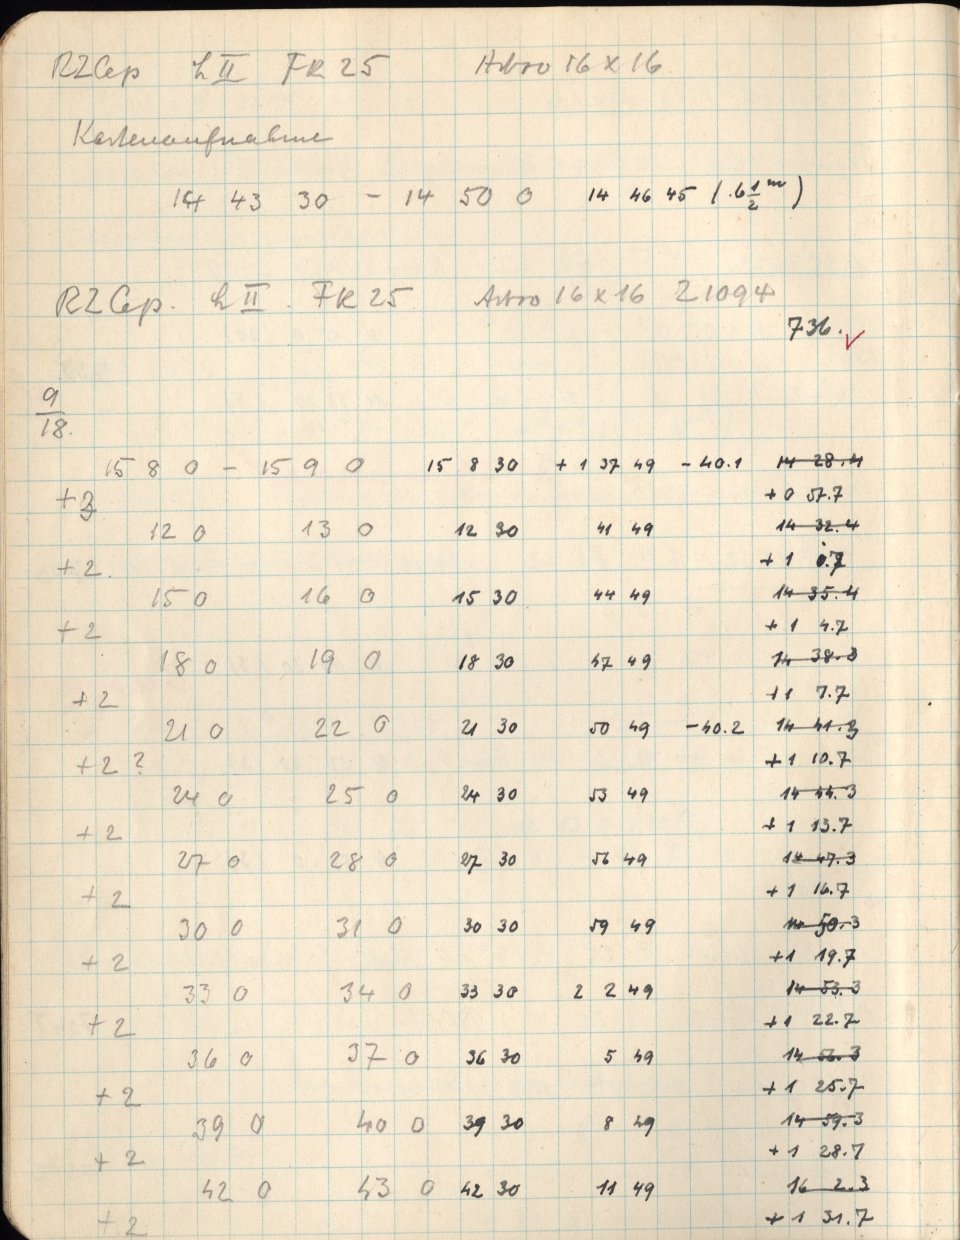 RZCep h II FK 25 Astro 16 x 16
Kartenaufnahme
14 43 30 - 14 50 0 14 46 45 (6 1/2 m)
RZCep. h II. FK 25 Astro 16 x 16 21094
736.
9/18.
15 8 0 - 15 9 0 15 8 30 + 1 37 49 - 40.1 14 28.4
+3 + 0 57.7
12 0 13 0 12 30 41 49 14 32.4
+2. + 1 0.7
15 0 16 0 15 30 44 49 14 35.4
+2 + 1 4.7
18 0 19 0 18 30 47 49 14 38.3
+2 + 1 7.7
21 0 22 0 21 30 50 49 - 40.2 14 41.3
+2 ? + 1 10.7
24 0 25 0 24 30 53 49 14 44.3
+2 + 1 13.7
27 0 28 0 27 30 56 49 14 47.3
+2 + 1 16.7
30 0 31 0 30 30 59 49 14 50.3
+2 + 1 19.7
33 0 34 0 33 30 2 2 49 14 53.3
+2 + 1 22.7
36 0 37 0 36 30 5 49 14 56.3
+2 + 1 25.7
39 0 40 0 39 30 8 49 14 59.3
+2 + 1 28.7
42 0 43 0 42 30 11 49 16 2.3
+2 + 1 31.7